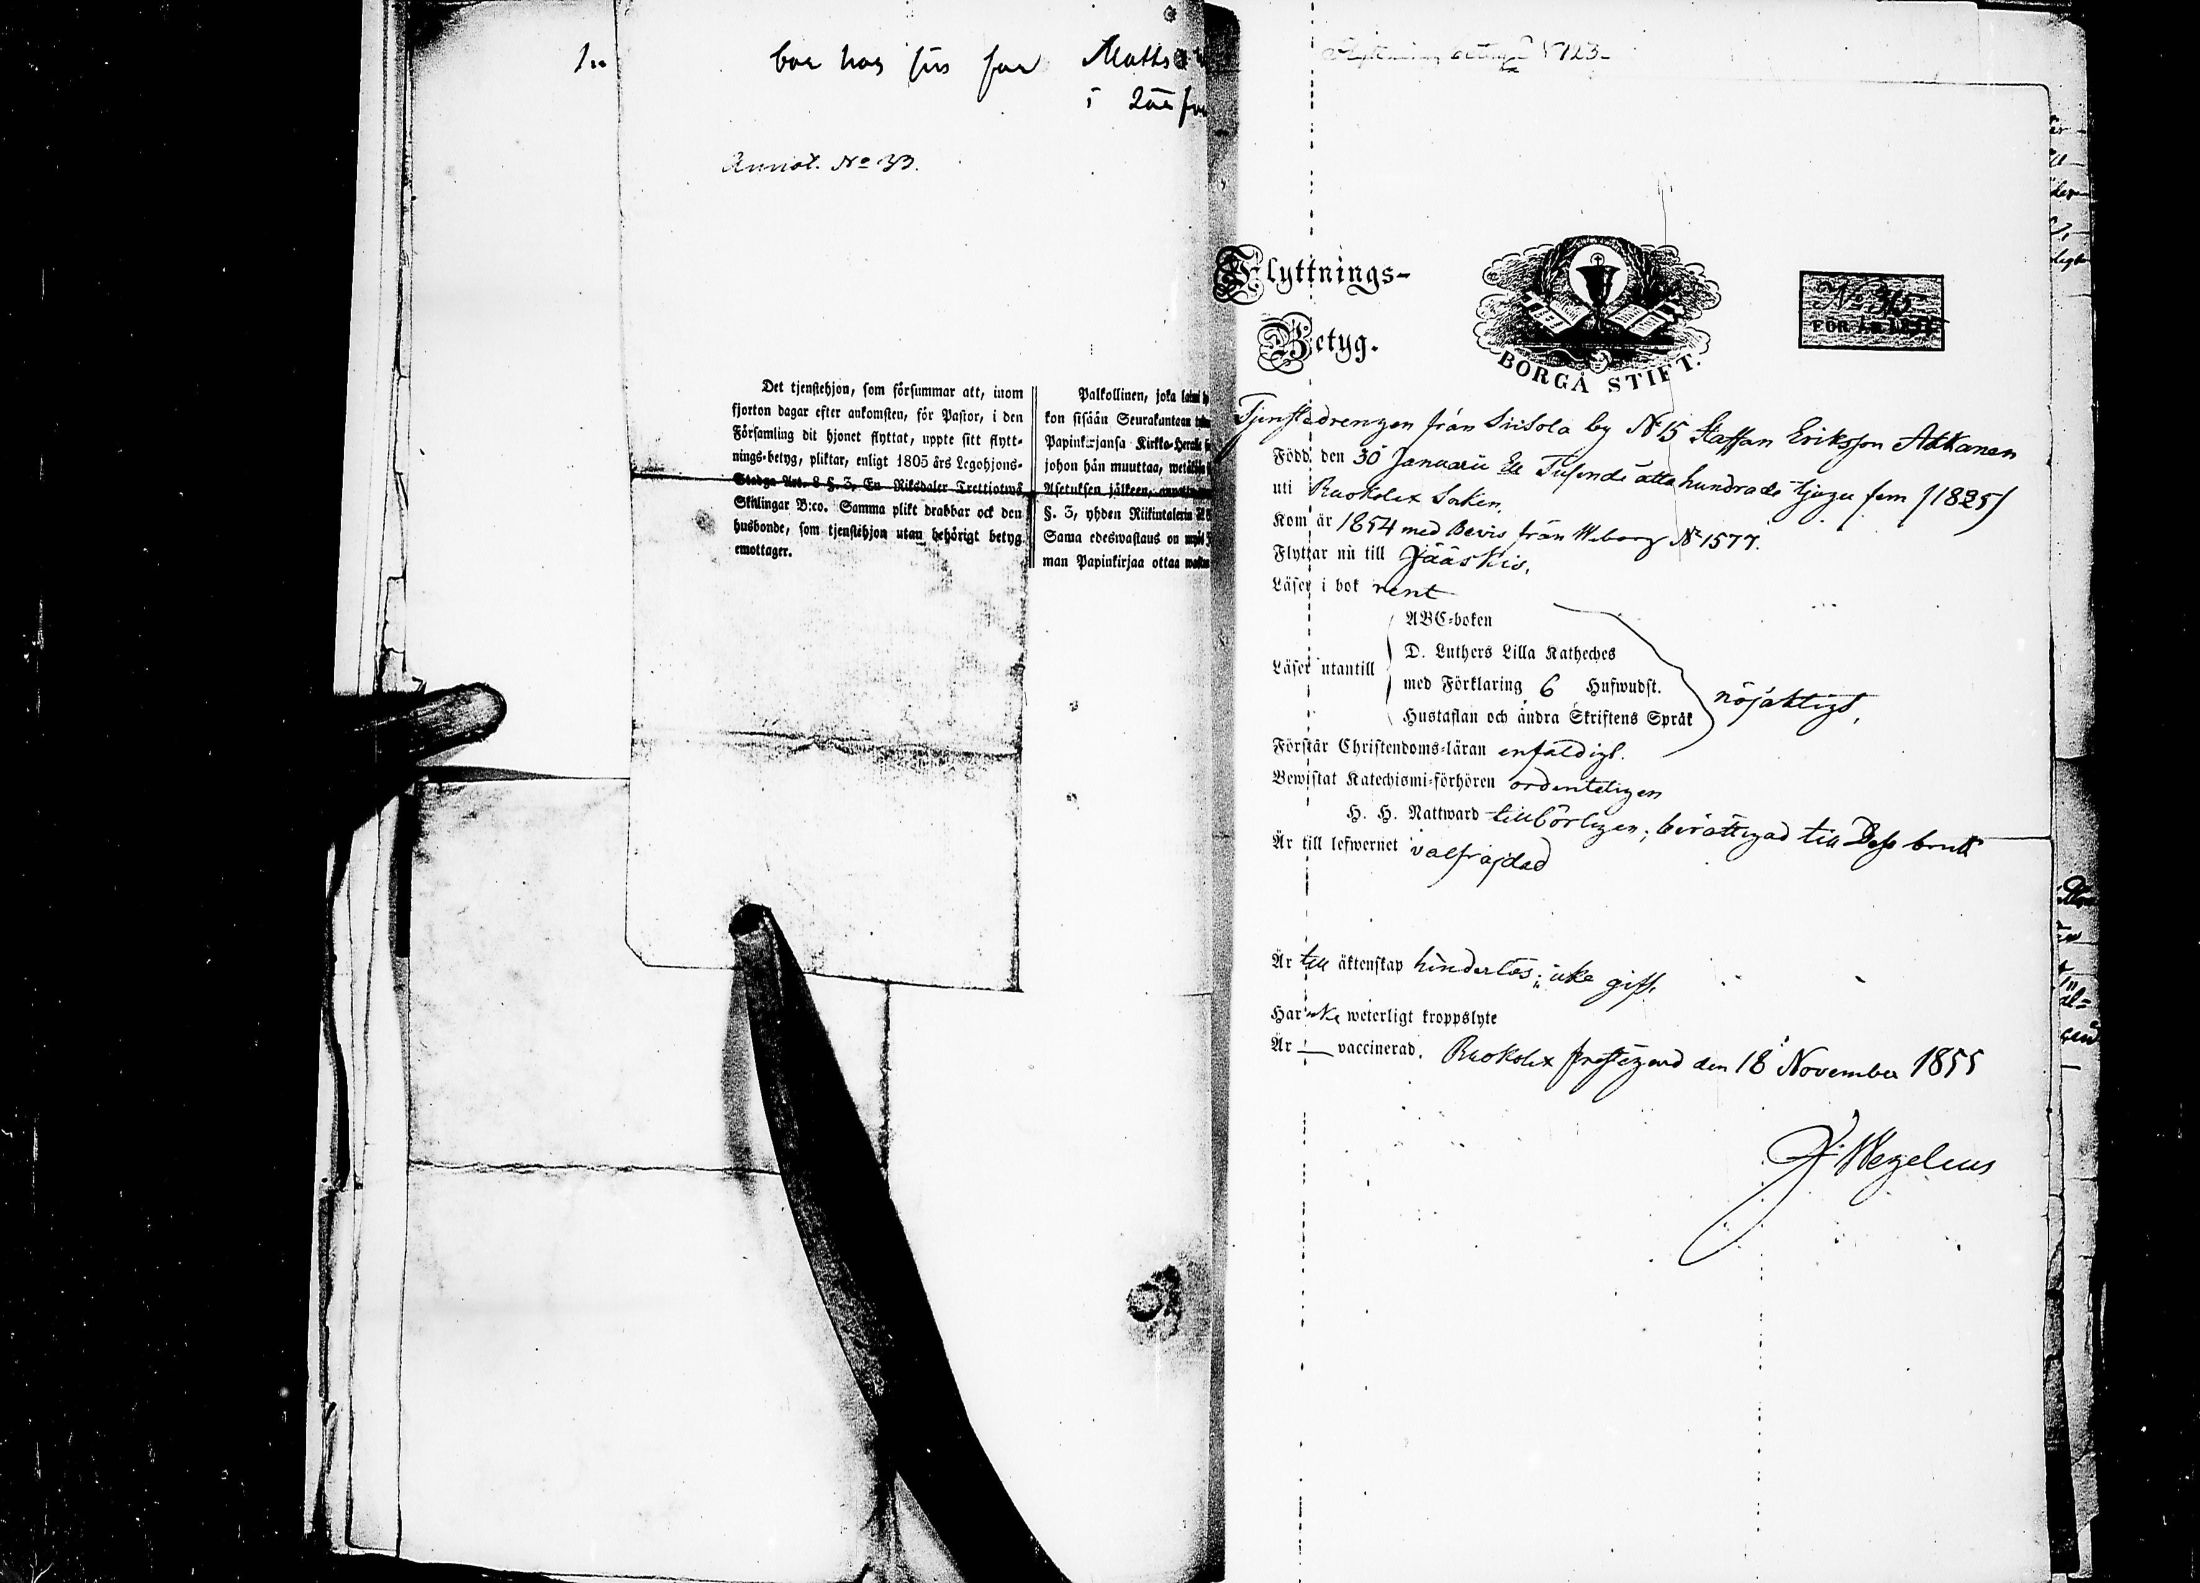 bor hos sin far Maths
i
Annot. No 33.
Det tjenstehjon, som försummar att, inom
fjorton dagar efter ankomsten, för Pastor, i den
Församling dit hjonet flyttat, uppte sitt flytt-
nings-betyg, pliktar, enligt 1805 års Legohjons-
Stadga Art. 8 §. 3, En Riksdaler Trettiotwå
Skillingar B:co. Samma plikt drabbar ock den
husbonde, som tjenstehjon utan behörigt betyg
emottager.
Palkollinen, joka
kon sisään Seurakuntaan
Papinkirjansa Kirkko-Herralle
johon hän muuttaa,
Asetuksen jälkeen,
§. 3, yhden Riikintalerin
Sama edeswastaus on
man Papinkirjaa ottaa
N 123
Flyttnings-
Betyg.
BORGÅ STIFT.
No 315
FÖR ÅR 1855
Tjenstedrengen från Siisola by N 15 Staffan Eriksson Akkanen
Född den 30 Januarii Ett Tusende åtta hundrade tjugu fem /1825/
uti Ruokolax Soken.
Kom år 1854 med Bevis från Wiborg No 1577.
Flyttar nu till Jääskis.
Läser i bok rent
ABC-boken
D. Luthers Lilla Katheches
Läser utantill
med Förklaring 6 Hufwudst.
nöjaktigt,
Hustaflan och andra Skriftens Språk
Förstår Christendoms-läran enfaldigt.
Bewistat Katechismi-förhören ordenteligen
H. H. Nattward tillbörligen; berättigad till Dess bruk
Är till lefwernet välfräjdad
Är till äktenskap hinderlös; icke gift.
Har icke weterligt kroppslyte
Är — vaccinerad. Ruokolax prestegård den 18 November 1855
Wegelius